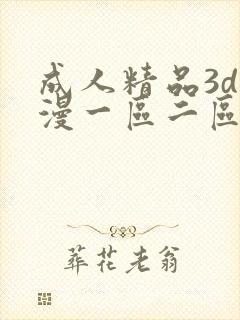 成人精品3d
漫一區二區
葬花老翁